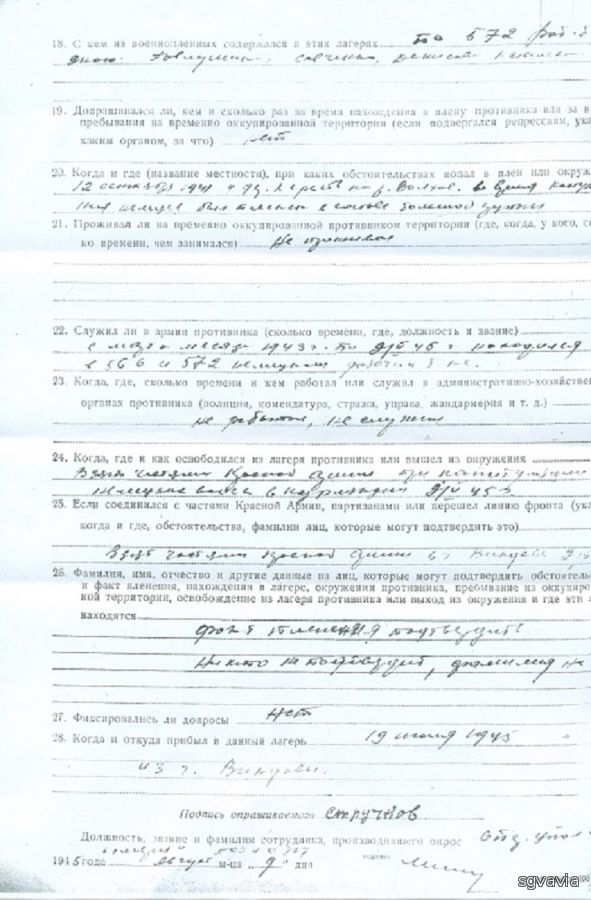 18. С кем из военнопленных содержался в этих лагерях по 572 раб. б
19. Допрашивался ли, кем и сколько раз за время нахождения в плену противника или за в
пребывания на временно оккупированной территории (если подвергался репрессиям, ука
каким органом, за что) нет
20. Когда и где (название местности), при каких обстоятельствах попал в плен или окруж
12 октября 1941 на р. Волхов. во время
немцев был пленен в составе большой группы
21. Проживал ли на временно оккупированной противником территории (где, когда, у кого, ск
ко времени, чем занимался) Не проживал
22. Служил ли в армии противника (сколько времени, где, должность и звание)
с марта месяца 1943 г. по 9/V 45 г находился
в 566 и 572 немецком рабочем б-не.
23. Когда, где, сколько времени и кем работал или служил в административно-хозяйствен
органах противника (полиция, комендатура, стража, управа, жандармерия и т. д.)
не работал, не служил
24. Когда, где и как освободился из лагеря противника или вышел из окружения
Взят частями Красной Армии при капитуляции
немецких войск в Курляндии 9/V 45 г
25. Если соединился с частями Красной Армии, партизанами или перешел линию фронта (ука
когда и где, обстоятельства, фамилии лиц, которые могут подтвердить это)
Взят частями Красной Армии в г. Виндаве 9/V
26. Фамилия, имя, отчество и другие данные на лиц, которые могут подтвердить обстоятель
и факт пленения, нахождения в лагере, окружении противника, пребывание на оккупиро
ной территории, освобождение из лагеря противника или выход из окружения и где эти л
находятся
факт пленения подтвердить
никто не подтвердит, фамилия не
27. Фиксировались ли допросы Нет
28. Когда и откуда прибыл в данный лагерь 19 июля 1945
из г. Виндавы.
Подпись опрашиваемого Стручков
Должность, звание и фамилия сотрудника, производившего опрос
1945 года август м-ца 9 дня
sgvavia